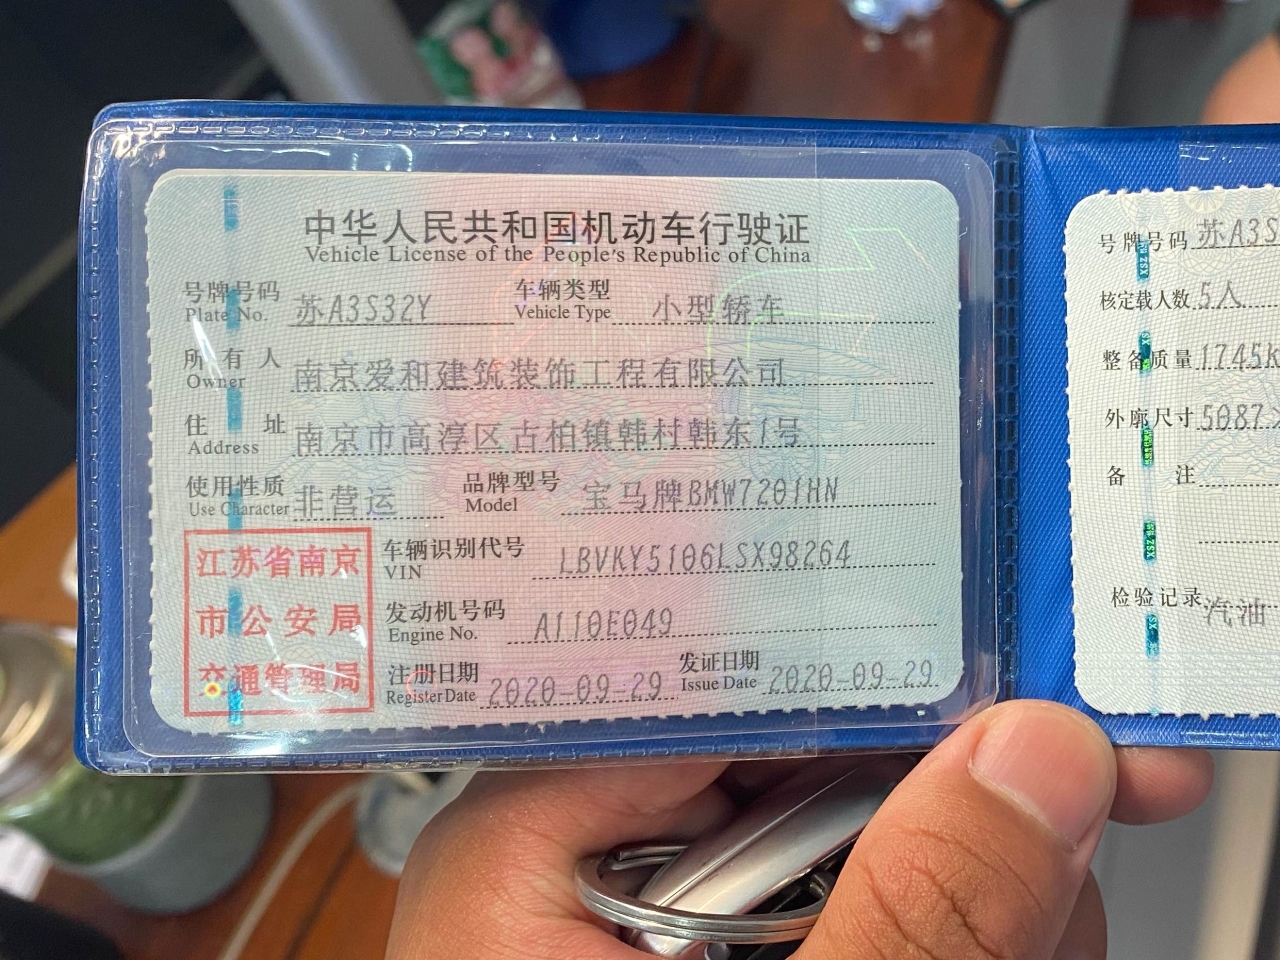 中华人民共和国机动车行驶证
Vehicle License of the People's Republic of China
号牌号码 苏A3S32Y 车辆类型 小型轿车
Plate No. Vehicle Type
所有人 南京爱和建筑装饰工程有限公司
Owner
住址 南京市高淳区古柏镇韩村韩东1号
Address
使用性质 非营运 品牌型号 宝马牌BMW7201HN
Use Character Model
车辆识别代号 LBVKY5106LSX98264
VIN
发动机号码 A110E049
Engine No.
注册日期 2020-09-29 发证日期 2020-09-29
Register Date Issue Date
江苏省南京
市公安局
交通管理局
号牌号码 苏A3S
核定载人数 5人
整备质量 1745K
外廓尺寸 5087
备注
检验记录 汽油